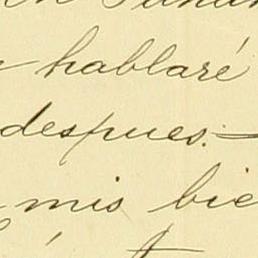 hablaré
despues.—
mis bie